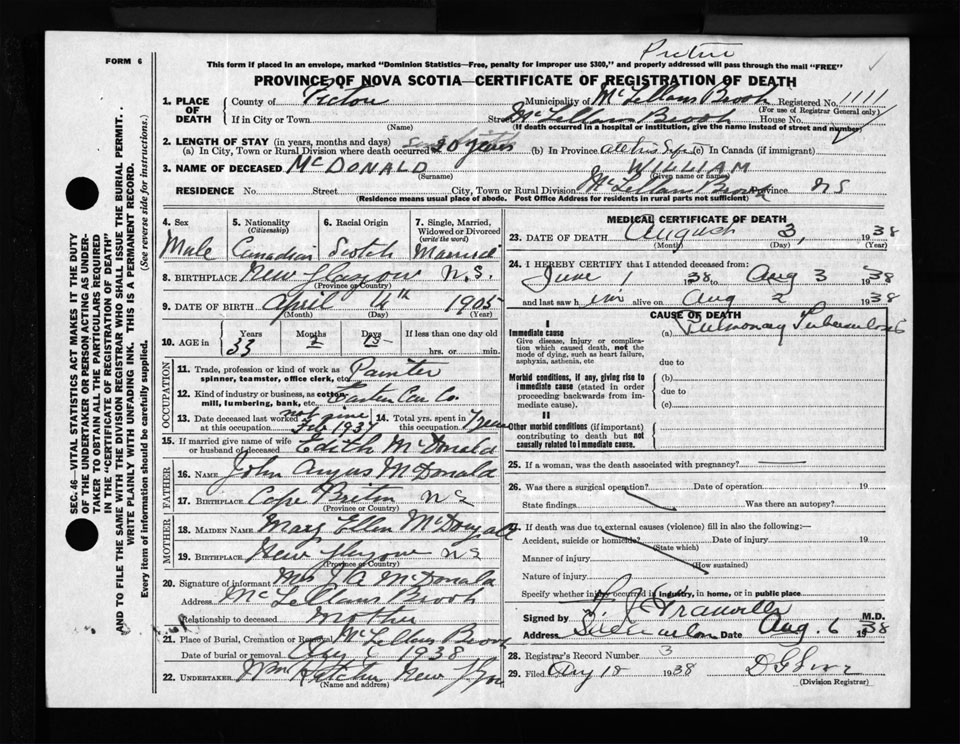 Pictou
FORM 6
This form if placed in an envelope, marked "Dominion Statistics—Free, penalty for improper use $300," and properly addressed will pass through the mail "FREE"
PROVINCE OF NOVA SCOTIA—CERTIFICATE OF REGISTRATION OF DEATH
1. PLACE OF DEATH County of Pictou Municipality of McLellans Brook Registered No. 1111
(For use of Registrar General only)
If in City or Town (Name) Street McLellans Brook House No.
(If death occurred in a hospital or institution, give the name instead of street and number)
2. LENGTH OF STAY (in years, months and days)
(a) In City, Town or Rural Division where death occurred 20 years (b) In Province all his life (c) In Canada (if immigrant)
3. NAME OF DECEASED McDONALD WILLIAM
(Surname) (Given name or names)
RESIDENCE No. Street City, Town or Rural Division McLellans Brook Province N S
(Residence means usual place of abode. Post Office Address for residents in rural parts not sufficient)
SEC. 46—VITAL STATISTICS ACT MAKES IT THE DUTY
OF THE UNDERTAKER OR PERSON ACTING AS UNDER-
TAKER TO OBTAIN ALL THE PARTICULARS REQUIRED
IN THE "CERTIFICATE OF REGISTRATION OF DEATH"
AND TO FILE THE SAME WITH THE DIVISION REGISTRAR WHO SHALL ISSUE THE BURIAL PERMIT.
WRITE PLAINLY WITH UNFADING INK. THIS IS A PERMANENT RECORD.
Every item of information should be carefully supplied. (See reverse side for instructions.)
4. Sex 5. Nationality 6. Racial Origin 7. Single, Married,
(Citizenship) Widowed or Divorced
(write the word)
Male Canadian Scotch Married
8. BIRTHPLACE New Glasgow N.S.
(Province or Country)
9. DATE OF BIRTH April 4th 1905
(Month) (Day) (Year)
10. AGE in Years Months Days If less than one day old
33 hrs. or min.
OCCUPATION
11. Trade, profession or kind of work as Painter
spinner, teamster, office clerk, etc
12. Kind of industry or business, as cotton- Eastern Car Co.
mill, lumbering, bank, etc.
13. Date deceased last worked not since
at this occupation. Feb 1937
14. Total yrs. spent in
this occupation 7 years
15. If married give name of wife
or husband of deceased Edith McDonald
FATHER
16. NAME John Angus McDonald
17. BIRTHPLACE Cape Briton N S
(Province or Country)
MOTHER
18. MAIDEN NAME Mary Ellen McDougall
19. BIRTHPLACE New Glasgow N S
(Province or Country)
20. Signature of informant Mrs J A McDonald
Address McLellans Brook
Relationship to deceased Mother
21. Place of Burial, Cremation or Removal McLellans Brook
Date of burial or removal Aug 6 1938
22. UNDERTAKER New Glasgow
(Name and address)
MEDICAL CERTIFICATE OF DEATH
23. DATE OF DEATH August 3, 1938
(Month) (Day)
24. I HEREBY CERTIFY that I attended deceased from:
June 1 1938 to Aug 3 1938
and last saw him alive on Aug 2 1938
CAUSE OF DEATH
I
Immediate cause (a) Pulmonary Tuberculosis
Give disease, injury or complica-
tion which caused death, not the
mode of dying, such as heart failure,
asphyxia, asthenia, etc due to
Morbid conditions, if any, giving rise to (b)
immediate cause (stated in order due to
proceeding backwards from im-
mediate cause). (c)
II
Other morbid conditions (if important)
contributing to death but not
causally related to immediate cause.
25. If a woman, was the death associated with pregnancy?
26. Was there a surgical operation? Date of operation 19
State findings Was there an autopsy?
27. If death was due to external causes (violence) fill in also the following:—
Accident, suicide or homicide? Date of injury 19
(State which)
Manner of injury
(How sustained)
Nature of injury
Specify whether injury occurred in industry, in home, or in public place
Signed by M.D.
Address Date Aug. 6 1938
28. Registrar's Record Number 3
29. Filed Aug 18 1938
(Division Registrar)